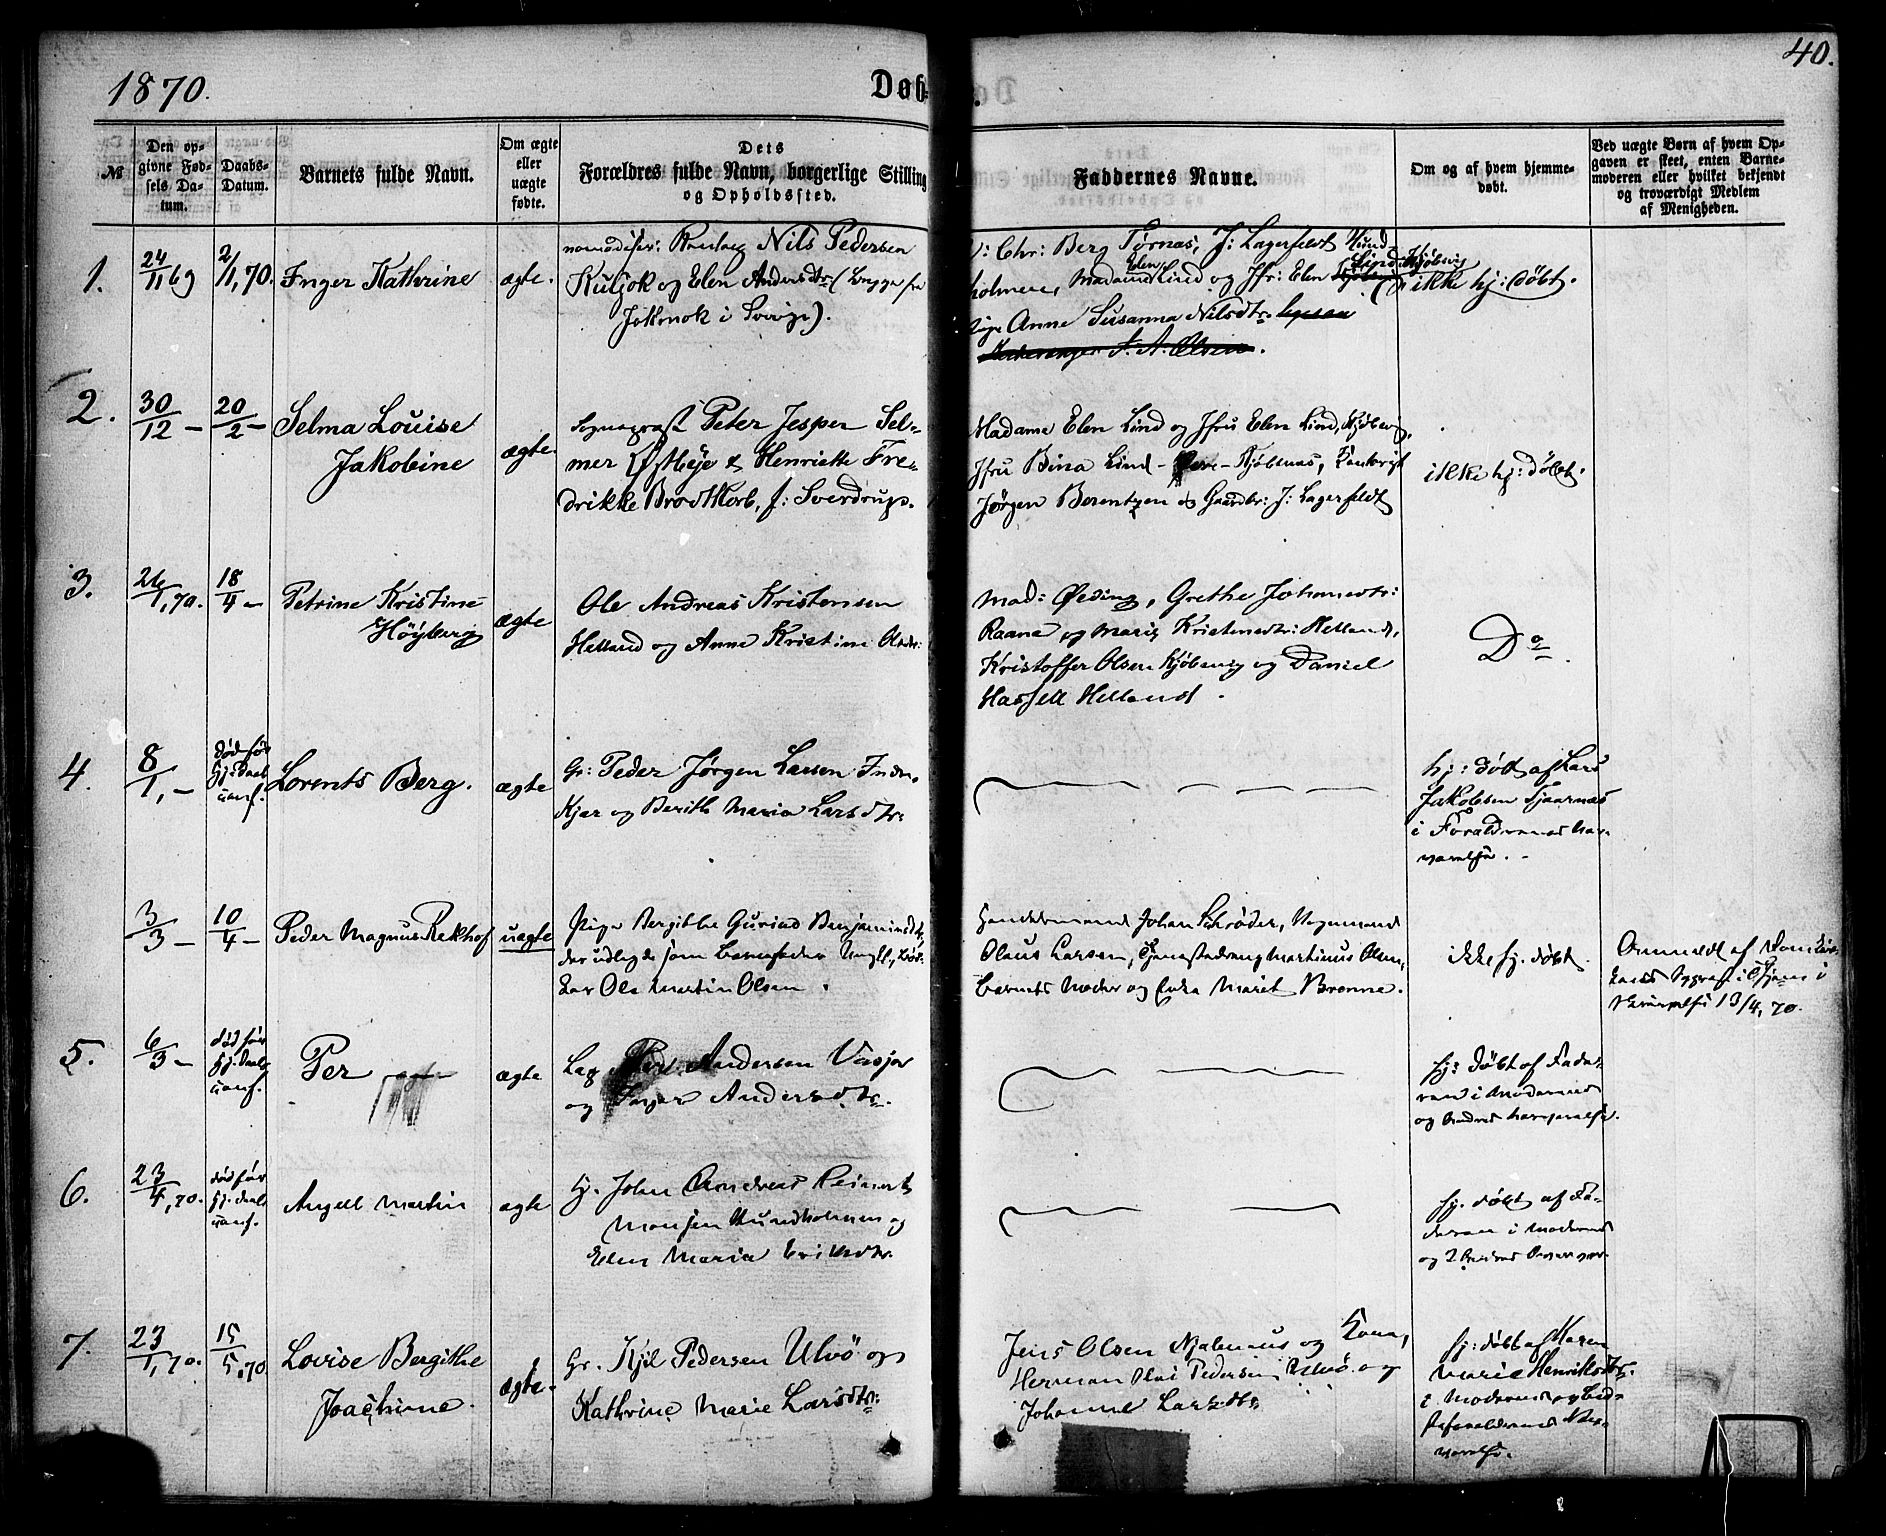 1870.
Døb-
40.
№
Den op-
givne Fød-
sels Da-
tum.
Daabs-
Datum.
Barnets fulde Navn.
Om ægte
eller
uægte
fødte.
Dets
Forældres fulde Navn, borgerlige Stilling
og Opholdssted.
Faddernes Navne.
Om og af hvem hjemme-
døbt.
Ved uægte Børn af hvem Op-
gaven er skeet, enten Barne-
moderen eller hvilket bekjendt
og troværdigt Medlem
af Menigheden.
1.
24/11 69
2/1, 70.
Inger Kathrine
ægte.
Nils Pedersen
Kuljok og Elen Andersdtr (
Jokmok i Sverige).
Chr: Berg Tørnæs, J: Lagerfeldt Hund-
holmen, Madame Elen Lind og Jfr: Elen Lind Kjøbsvig
Pige Anne Susanna Nilsdtr:
A: Olsen.
ikke hj: døbt.
2.
30/12 –
20/2 –
Selma Louise
Jakobine
ægte
Sogneprest Peter Jesper Sel-
mer Østbye & Henriette Fre-
drikke Brodtkorb, f: Sverdrup.
Madame Elen Lind og Jfru Elen Lind, Kjøbsvig,
Jfru Bina Lind – Kjøbnæs,
Jørgen Berentzen & Gaardbr: J: Lagerfeldt
ikke hj: døbt.
3.
26/1, 70.
18/4 –
Petrine Kristine
Höyberg
ægte
Ole Andreas Kristensen
Helland og Anne Kristine Olsdtr:
Mad: Øeding, Grethe Johansdtr:
Raana, og Marie Kristensdtr: Helland,
Kristoffer Olsen Kjøbsvig og Daniel
Hassell Helland.
Do.
4.
8/1, –
død før
hj: Daab
Lorents Berg.
ægte
Gr: Peder Jørgen Larsen Inder-
Kjær og Berith Maria Larsdtr:
hj: døbt af Lars
Jakobsen Tjaarnæs
i Forældrenes Nær-
værelse.
3/3 –
10/4 –
Peder Magnus Rekhof
uægte
Pige Bergitha Gurine Benjaminsdtr,
der udlagde som Barnefader Ungk.,
Ole Martin Olsen.
Johan Schrøder,
Olaus Larsen, Tjenestedreng Martinus Olsen,
Barnets Moder og Enke Marit Brænne.
ikke hj. døbt.
Anmeldt af
13/4, 70.
5.
6/3 –
død før
hj: Daab
Per
ægte
Lap Per Andersen Vasjar
og Inger Andersdtr.
hj: døbt af Fade-
ren i Moderens
og Andres Nærværelse.
6.
23/4, 70.
død før
hj. Daab
Angell Martin
ægte
Hj. John Andreas Reinert
Monsen Hundholmen og
Elen Maria Eriksdtr.
hj. døbt af Fa-
deren i Moderens
og 2
7.
23/1, 70.
15/5, 70
Lovise Bergithe
Joachime.
ægte.
Gr. Kjil Pedersen Ulvö og
Kathrine Marie Larsdtr:
Jens Olsen Njalmnæs og Kone,
Herman Olai Pedersen Ulvö og
Johanne Larsdtr
hj: døbt af Maren
Marie Henriksdtr.
i Moderens og Bed-
steforældrenes Nær-
værelse.